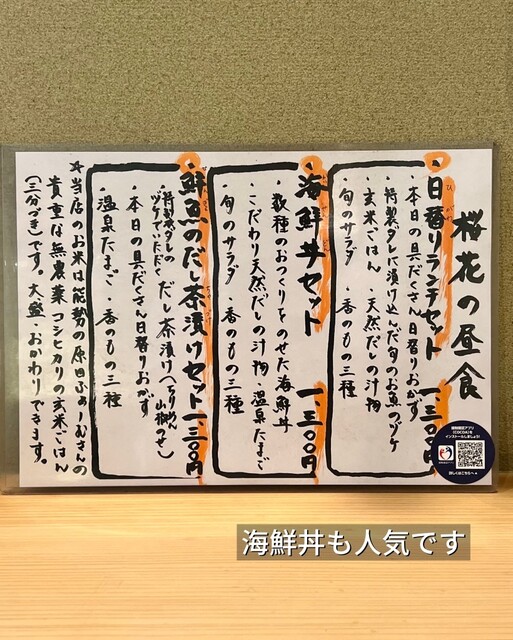 桜花の昼食
日替りランチセット 一、三〇〇円
・本日の具だくさん日替りおかず
・特製タレに漬け込んだ旬のお魚のヅケ
・玄米ごはん ・天然だしの汁物
・旬のサラダ ・香のもの三種
海鮮丼セット 一、三〇〇円
・数種のおつくりをのせた海鮮丼
・こだわり天然だしの汁物・温泉たまご
・旬のサラダ ・香のもの三種
鮮魚のだし茶漬けセット 一、三〇〇円
・特製タレの
ヅケでいただく だし茶漬け(ちりめん
山椒のせ)
・本日の具だくさん日替りおかず
・温泉たまご ・香のもの三種
☆当店のお米は能勢の原田ふぁーむさんの
貴重な無農薬コシヒカリの玄米ごはん
(三分づき)です。大盛・おかわりできます。
海鮮丼も人気です